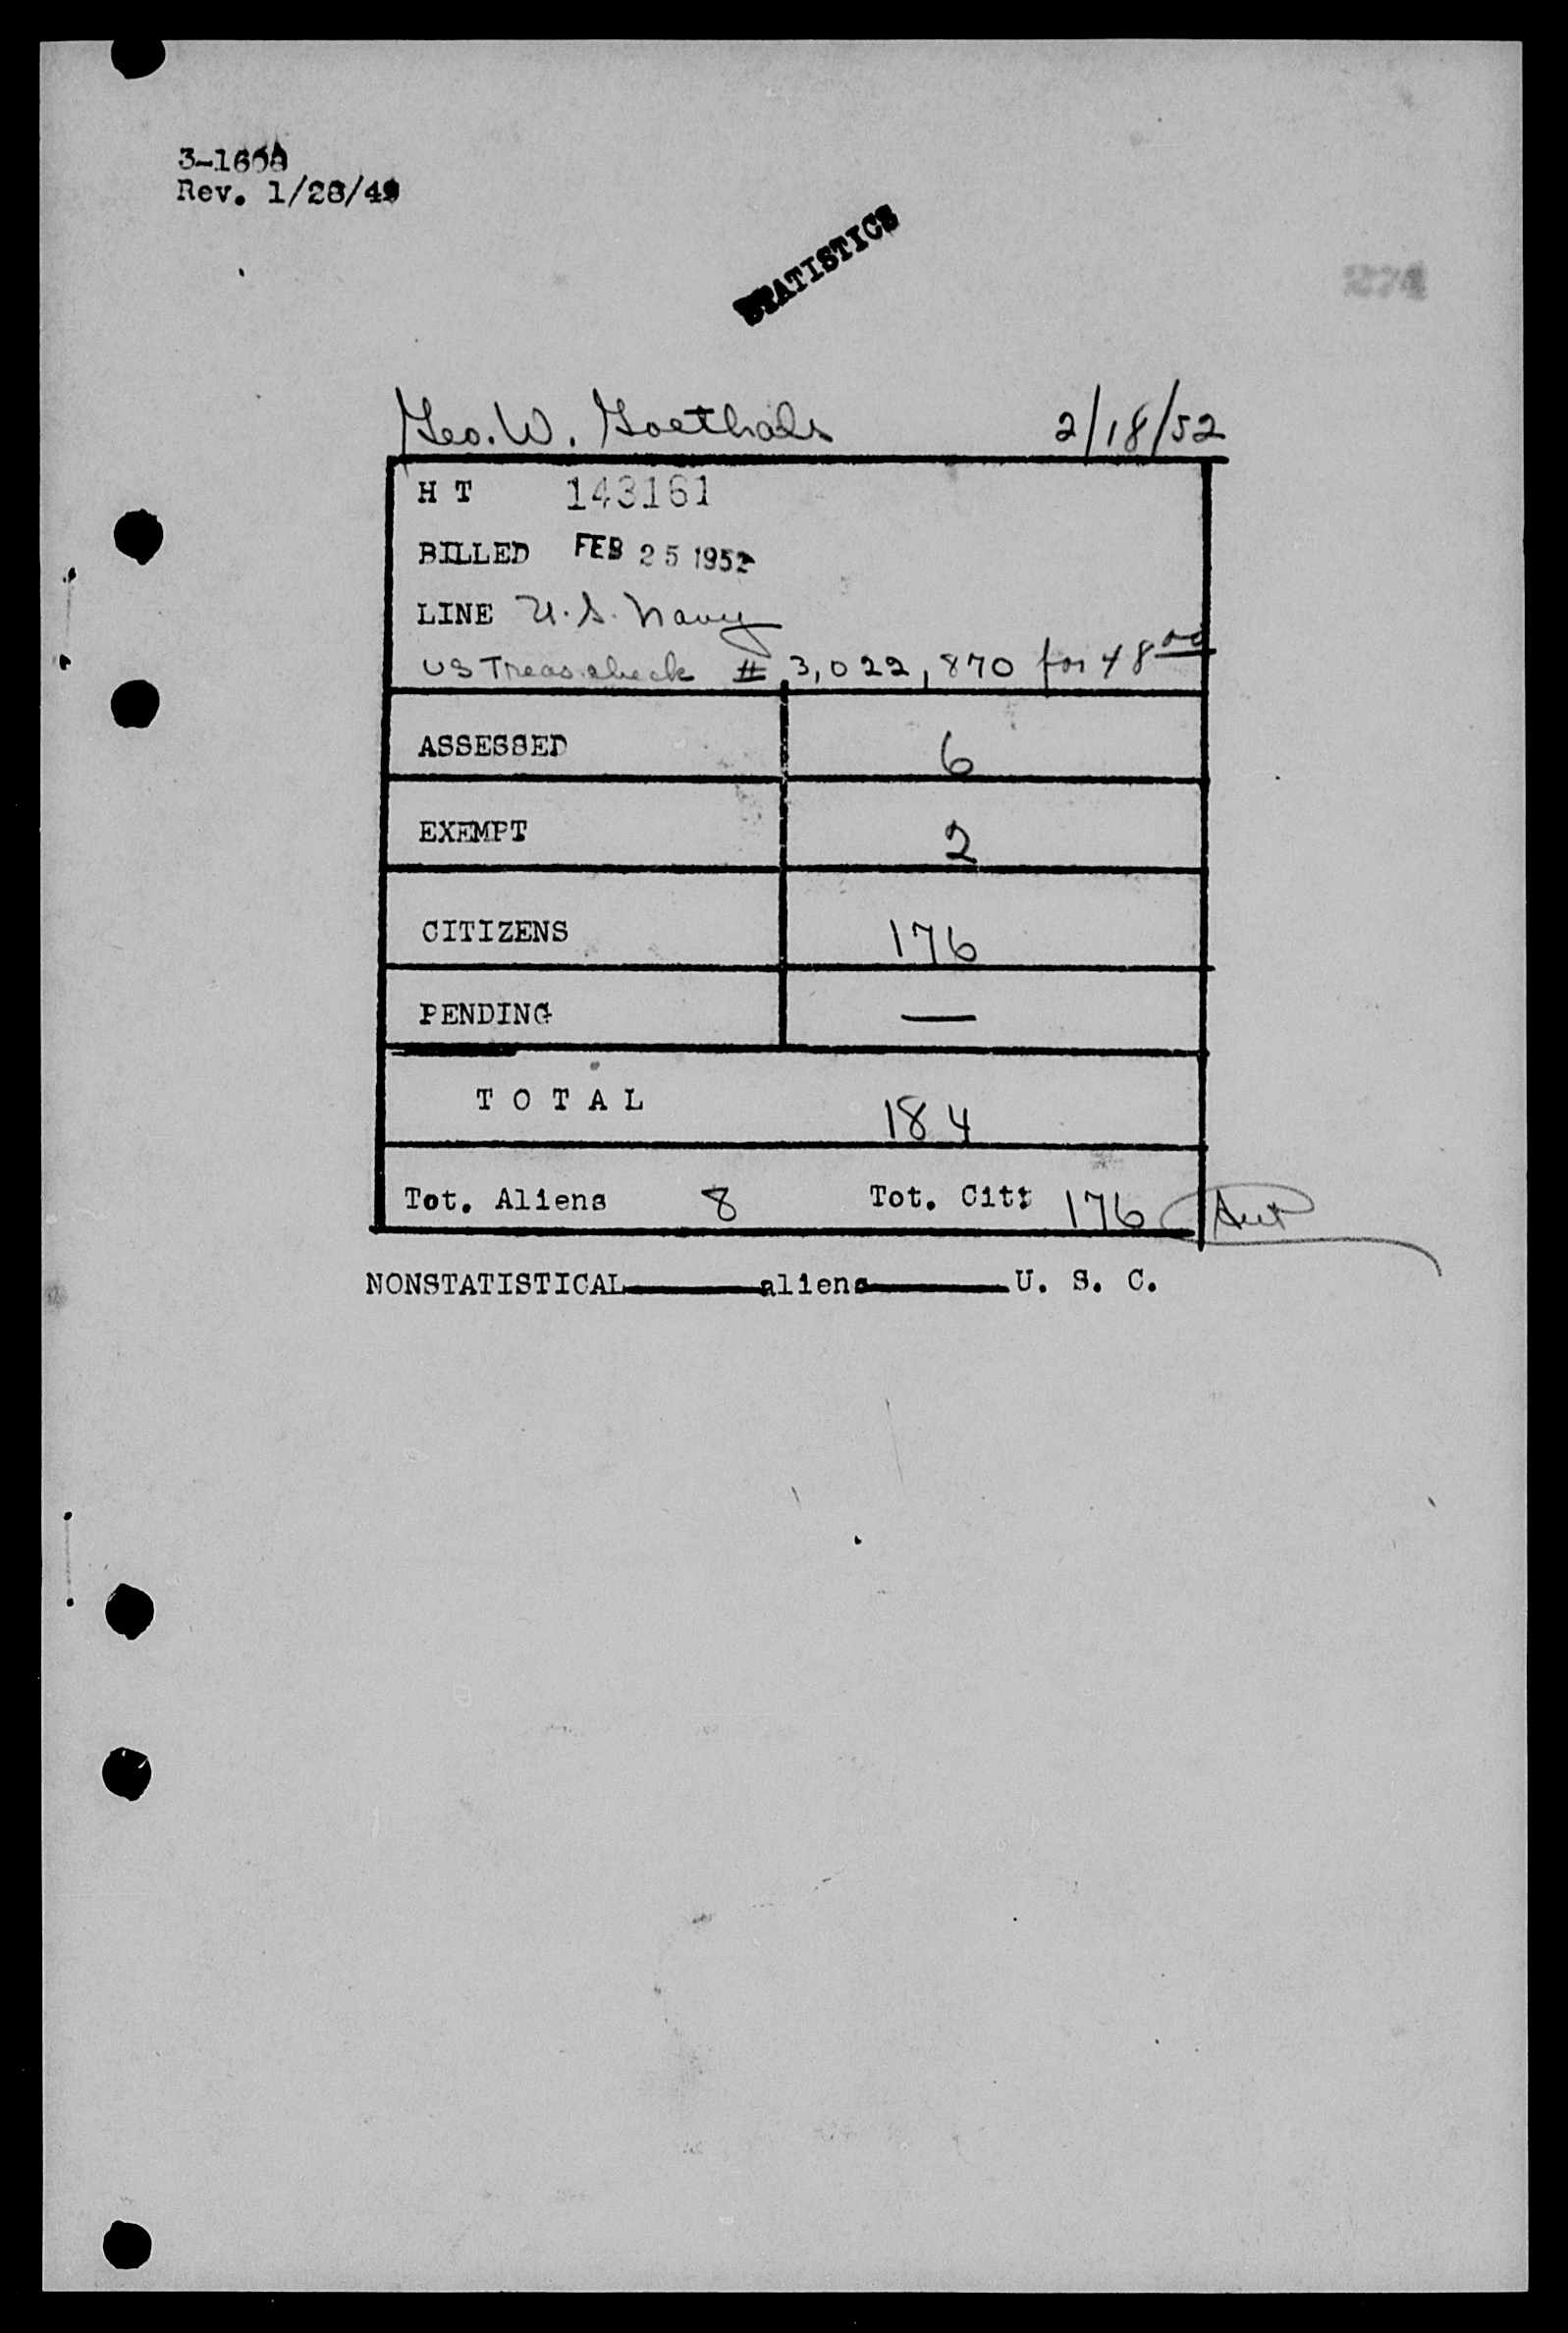 Rev. 1/28/49
STATISTICS
274
Geo. W. Goethals 2/18/52
H T 143161
BILLED FEB 25 1952
LINE U.S. Navy
US Treas. check # 3,022,870 for 48 00
ASSESSED 6
EXEMPT 2
CITIZENS 176
PENDING —
T O T A L 184
Tot. Aliens 8 Tot. Cit: 176
NONSTATISTICAL aliens U. S. C.